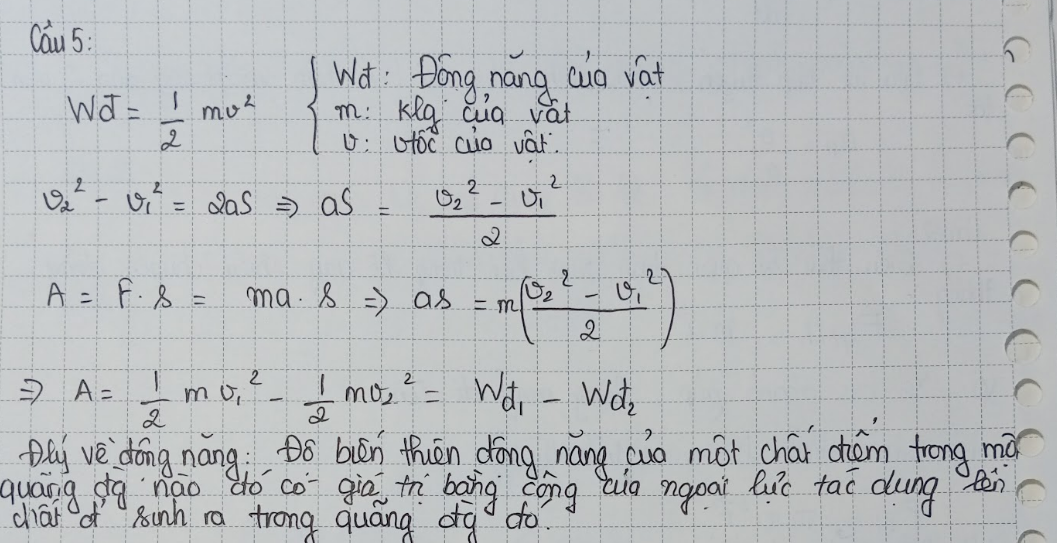 Câu 5:
Wđ = 1/2 mv² { Wđ: Động năng của vật
m: klg của vật
v: vtốc của vật.
v₂² - v₁² = 2aS ⇒ aS = (v₂² - v₁²)/2
A = F.s = ma.s ⇒ as = m((v₂² - v₁²)/2)
⇒ A = 1/2 mv₁² - 1/2 mv₂² = Wđ₁ - Wđ₂
Đlý về động năng: Độ biến thiên động năng của một chất điểm trong một
quãng đg nào đó có giá trị bằng công của ngoại lực tác dụng lên
chất đ' sinh ra trong quãng đg đó.